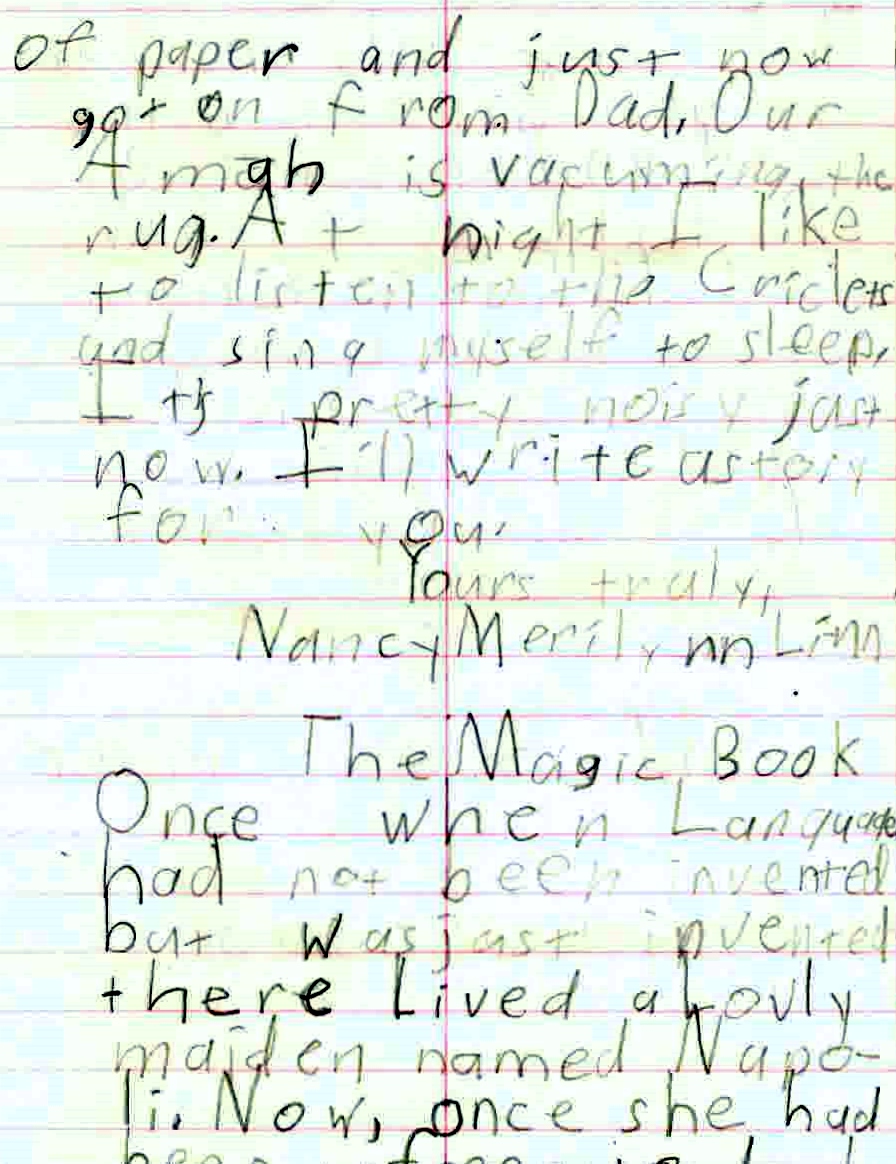 of paper and just now
got on from Dad. Our
Amah is vacuming the
rug. At night I like
to listen to the Criclets
and sing myself to sleep.
Its pretty noisy just
now. I'll write a story
for you.
Yours truly,
Nancy Merilynn Linn
The Magic Book
Once when Language
had not been invented
but was just invented
there Lived a Lovly
maiden named Napo-
li. Now, once she had